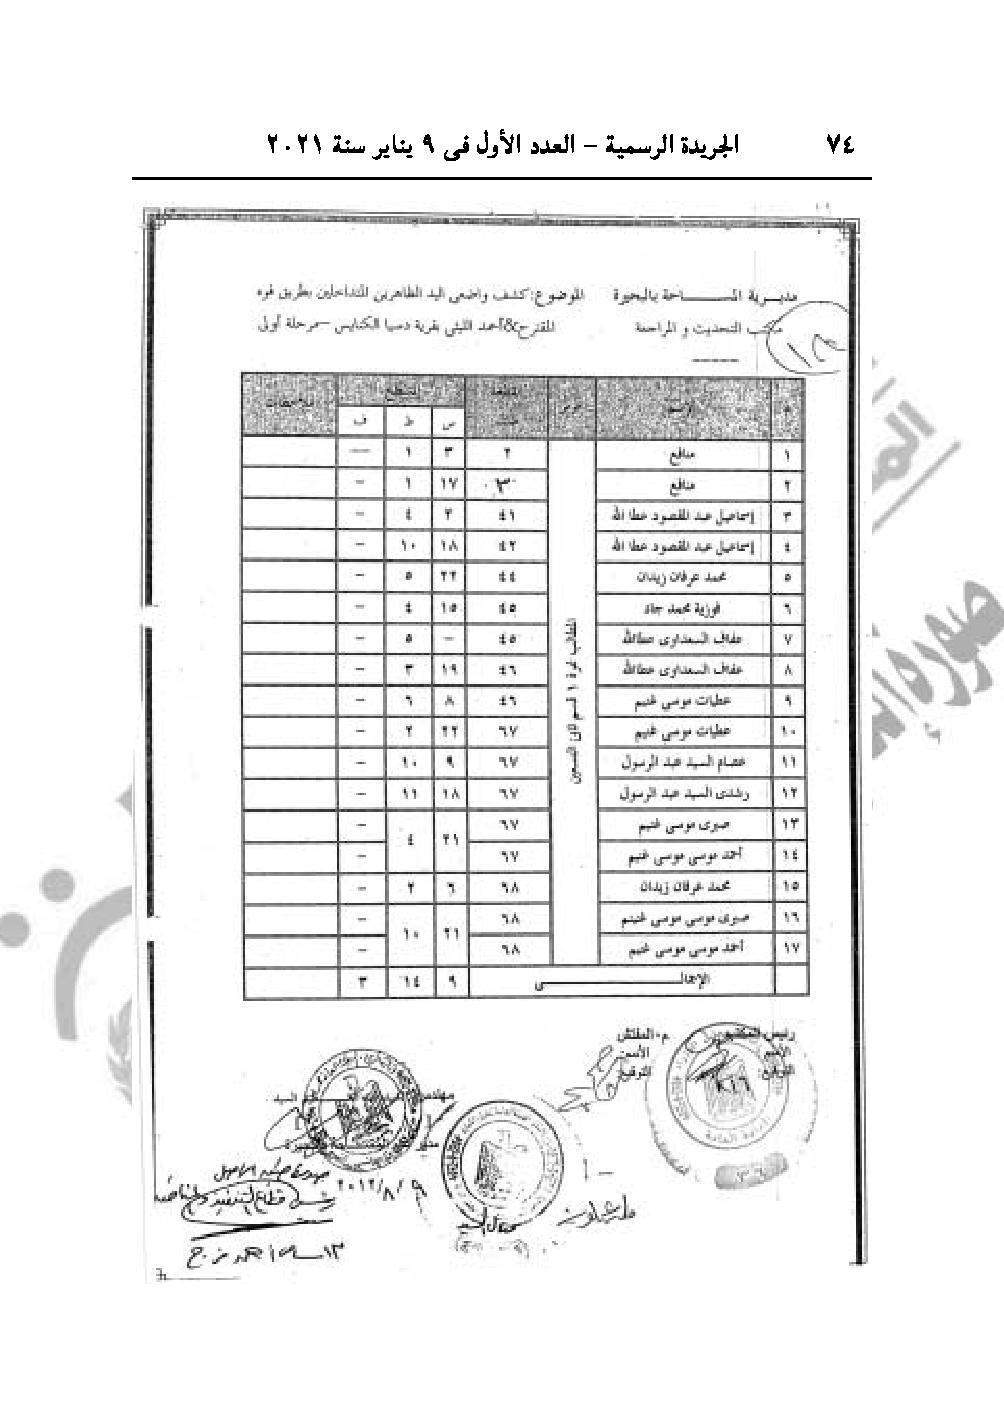 ٧٤ الجريدة الرسمية – العدد الأول فى ٩ يناير سنة ٢٠٢١
مديرية المساحة بالبحيرة الموضوع: كشف واضعى اليد الظاهرين المتداخلين بطريق فوه
مكتب التحديث و المراجعة المقترح & أحمد الليثى بقرية دسيا الكنايس – مرحلة أولى
م الإسم حوض القطعة المسطح ملاحظات
س ط ف
١ منافع ٢ ٣ ١ —
٢ منافع ٣ ١٧ ١ –
٣ إسماعيل عبد المقصود عطا الله ٤١ ٢ ٤ –
٤ إسماعيل عبد المقصود عطا الله ٤٢ ١٨ ١٠ –
٥ محمد عرفان زيدان ٤٤ ٢٢ ٥ –
٦ فوزية محمد جاد ٤٥ ١٥ ٤ –
٧ عفاف السعداوى عطاالله ٤٥ – ٥ –
٨ عفاف السعداوى عطاالله ٤٦ ١٩ ٣ –
٩ عطيات موسى غنيم ٤٦ ٨ ٦ –
١٠ عطيات موسى غنيم ٦٧ ٢٢ ٢ –
١١ عصام السيد عبد الرسول ٦٧ ٩ ١٠ –
١٢ رشدى السيد عبد الرسول ٦٧ ١٨ ١١ –
١٣ صبرى موسى غنيم ٦٧ ٢١ ٤ –
١٤ أحمد موسى موسى غنيم ٦٧ –
١٥ محمد عرفان زيدان ٦٨ ٦ ٢ –
١٦ صبرى موسى موسى غنيم ٦٨ ٢١ ١٠ –
١٧ أحمد موسى موسى غنيم ٦٨ –
الإجمالى ٩ ١٤ ٣
رئيس المكتب م. المفتش
الإسم الأسم
التوقيع التوقيع